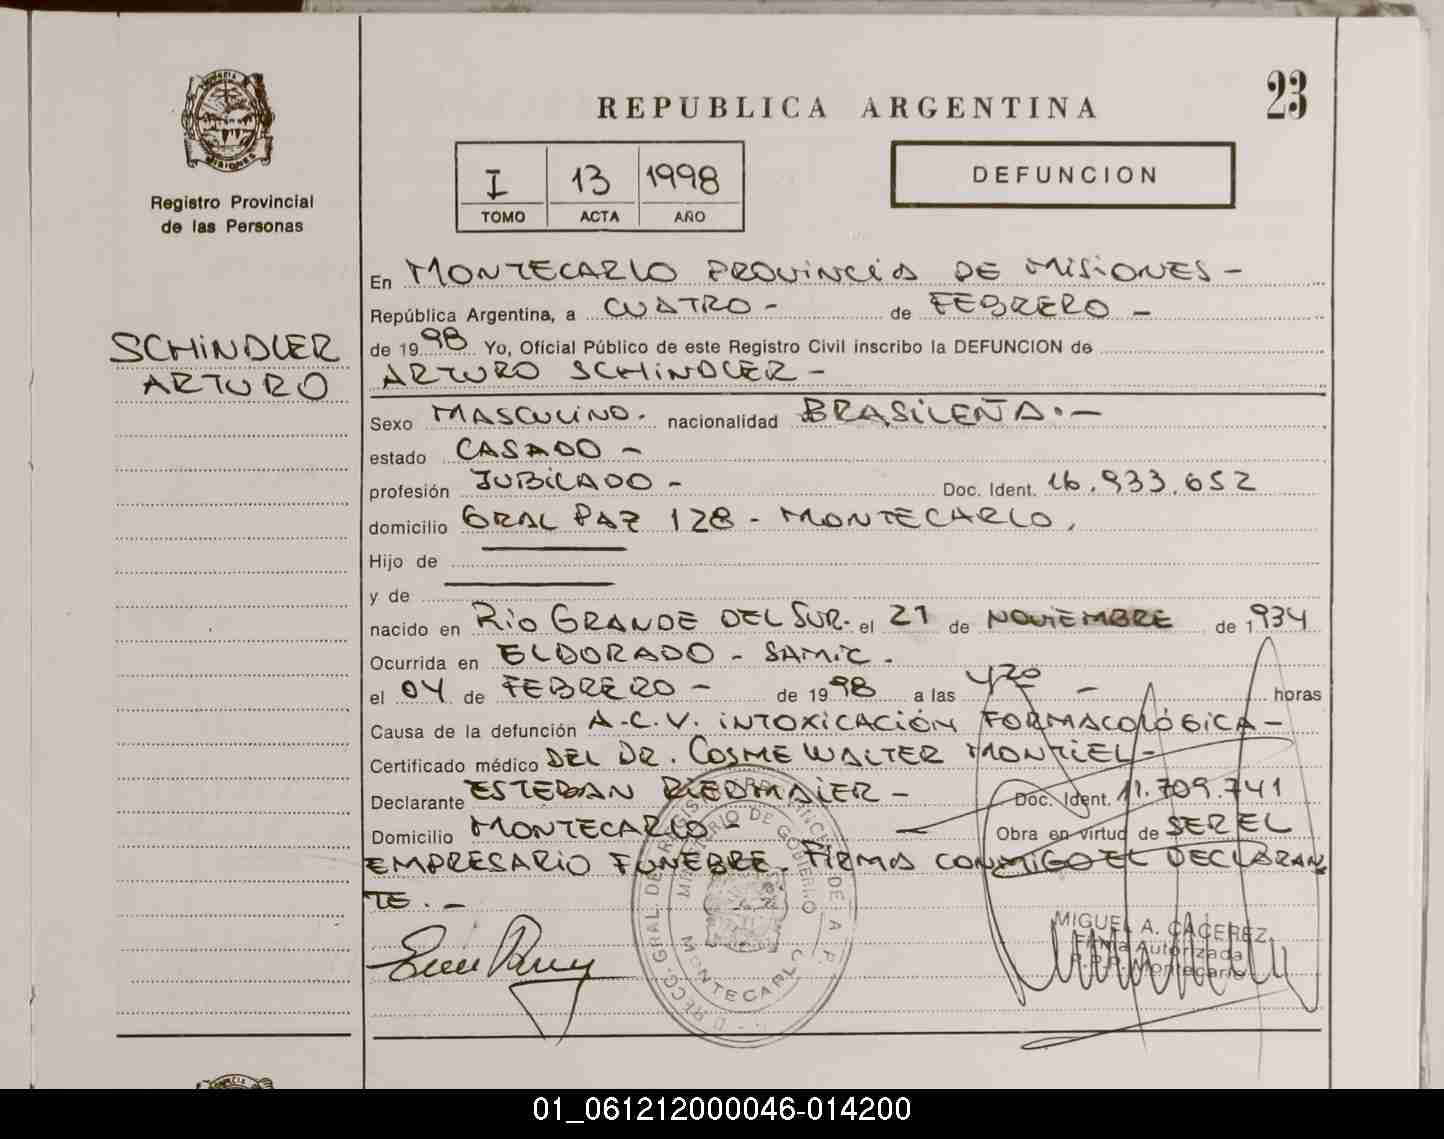 23
REPUBLICA ARGENTINA
I 13 1998
TOMO ACTA AÑO
DEFUNCION
MISIONES
Registro Provincial
de las Personas
SCHINDLER
ARTURO
En MONTECARLO PROVINCIA DE MISIONES -
República Argentina, a CUATRO - de FEBRERO -
de 1998 Yo, Oficial Público de este Registro Civil inscribo la DEFUNCION de
ARTURO SCHINDLER -
Sexo MASCULINO. nacionalidad BRASILEÑA. -
estado CASADO -
profesión JUBILADO - Doc. Ident. 16.933.652
domicilio GRAL PAZ 128 - MONTECARLO.
Hijo de
y de
nacido en RIO GRANDE DEL SUR. el 21 de NOVIEMBRE de 1934
Ocurrida en ELDORADO - SAMIC.
el 04 de FEBRERO - de 1998 a las 420 - horas
Causa de la defunción A.C.V. INTOXICACIÓN FORMACOLÓGICA -
Certificado médico DEL DR. COSME WALTER MONTIEL -
Declarante ESTEBAN RIEDMAIER - Doc. Ident. 11.709.741
Domicilio MONTECARLO - Obra en virtud de SER EL
EMPRESARIO FUNEBRE. FIRMA CONMIGO EL DECLARAN
TE. -
MINISTERIO DE GOBIERNO
MONTECARLO
MIGUEL A. CACEREZ
Firma Autorizada
R.P.P. Montecarlo
01_061212000046-014200